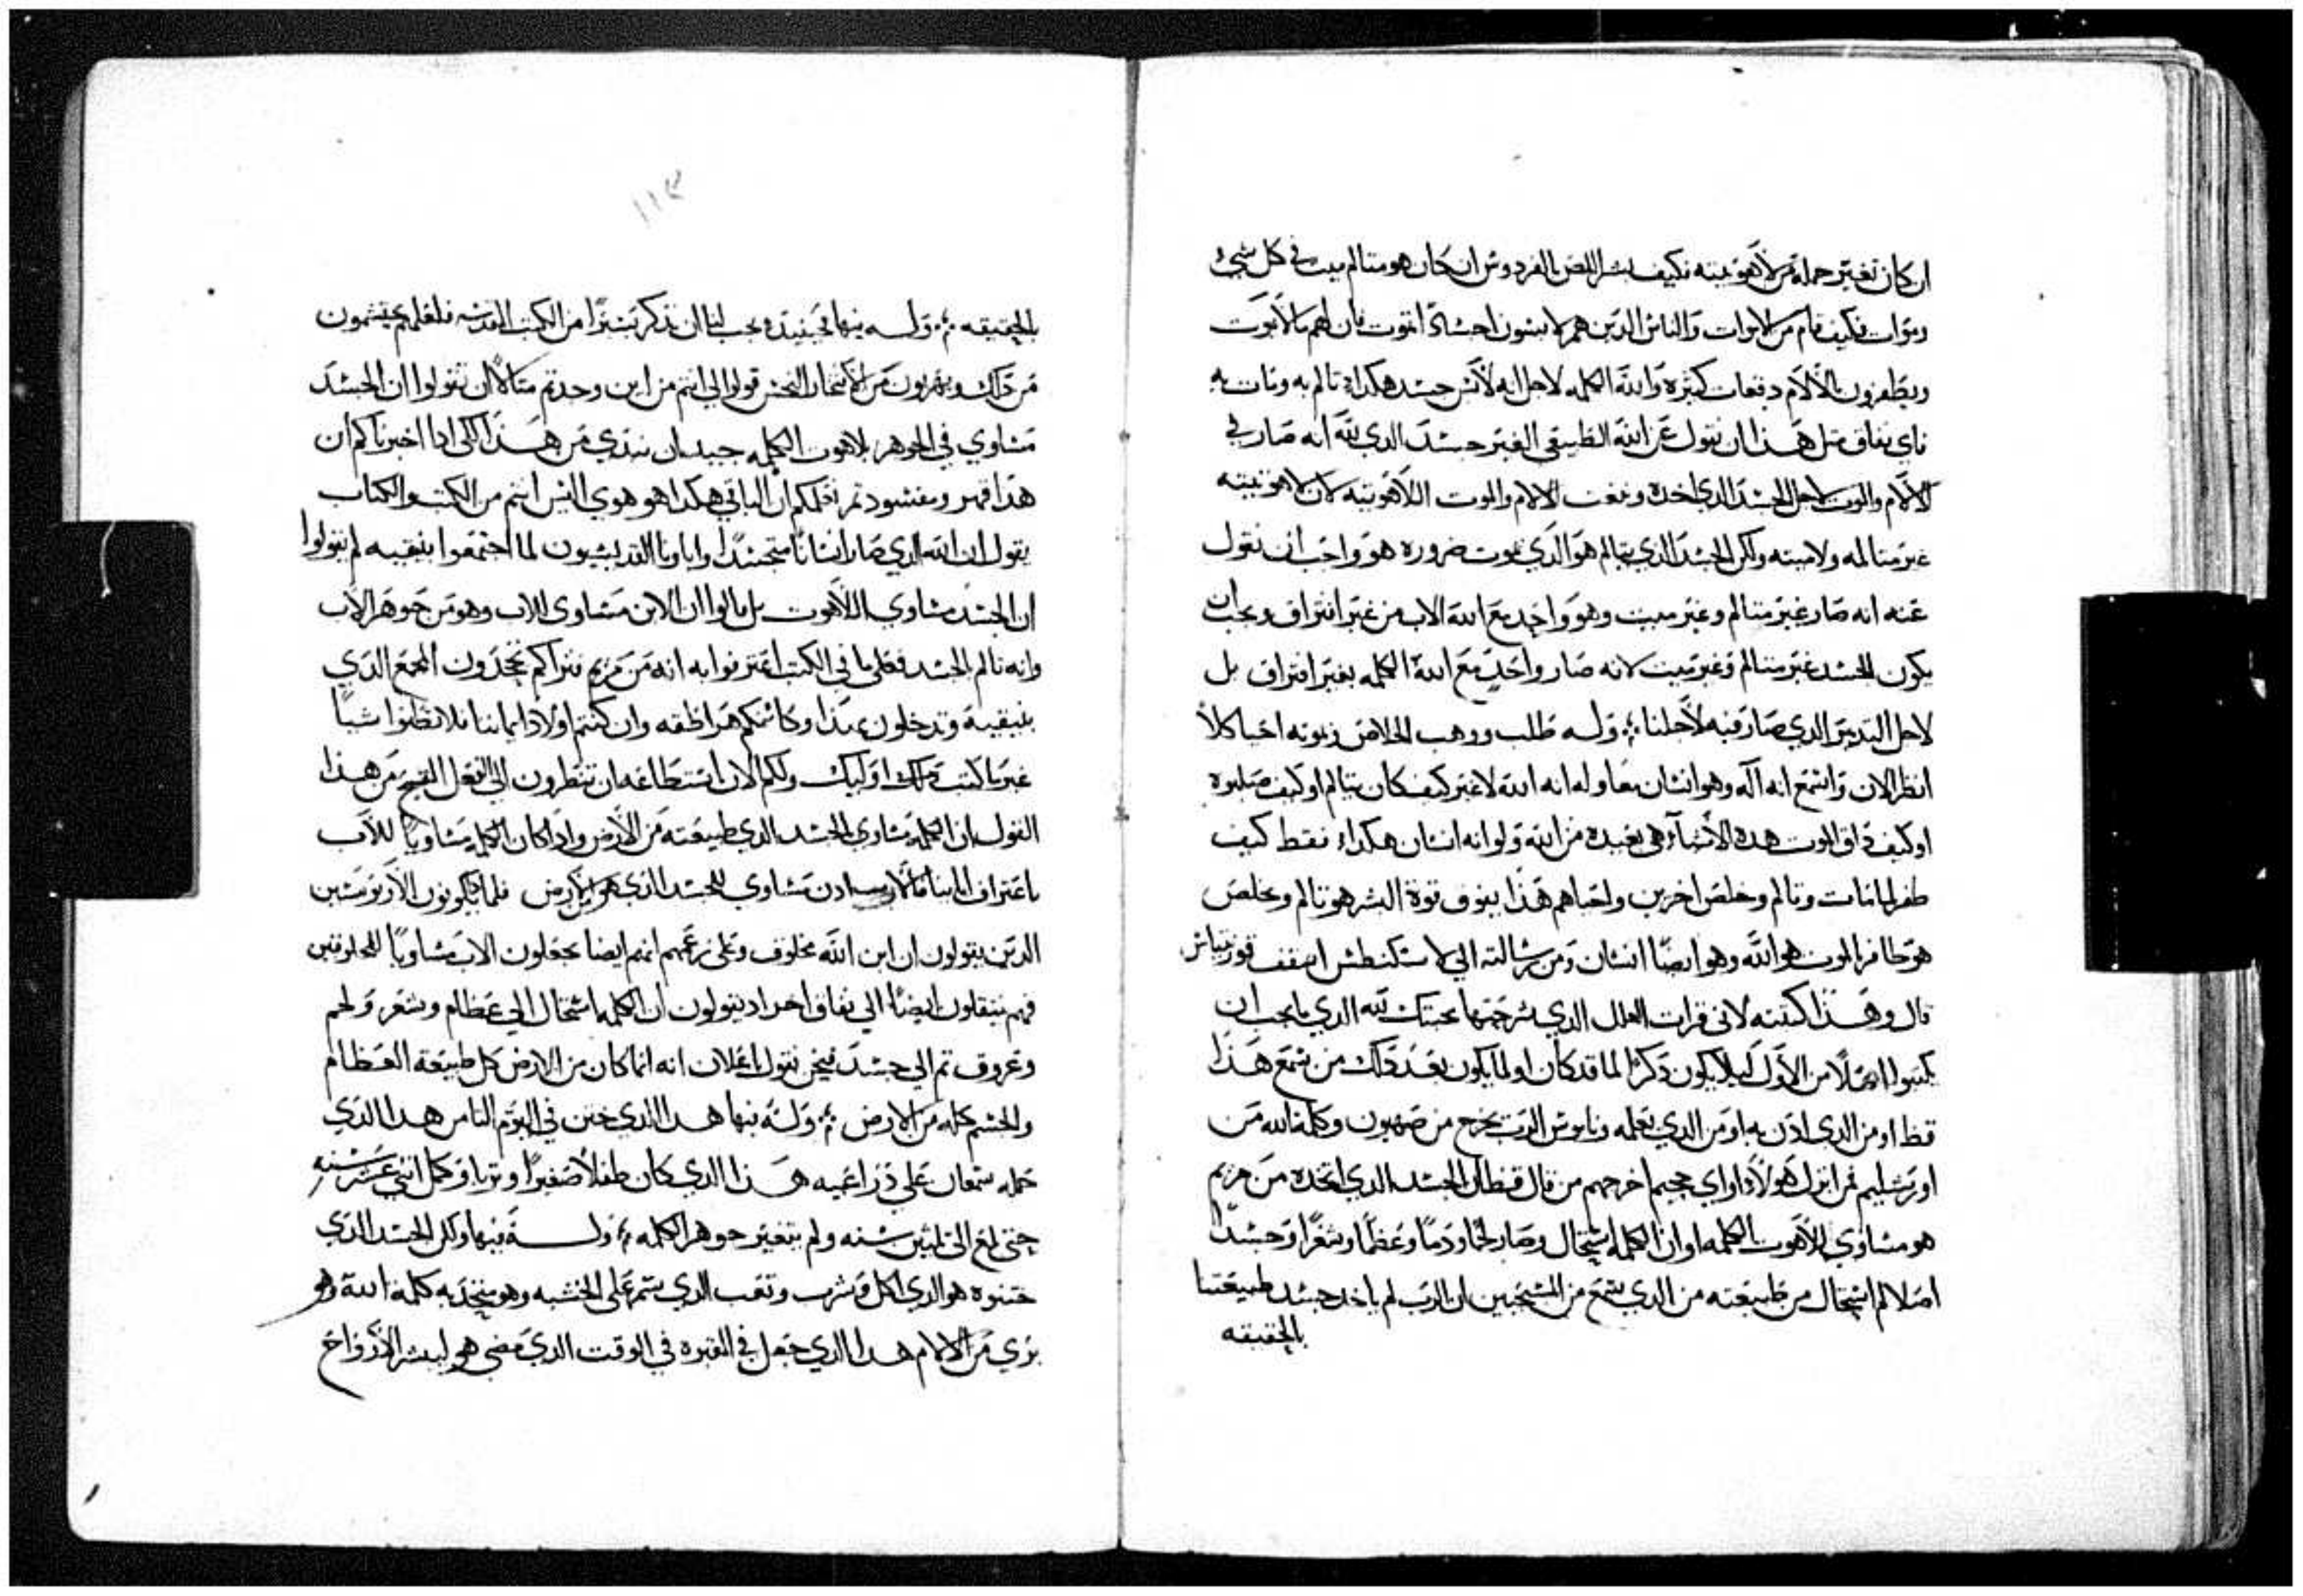 ان كان تغير حمله من لاهوتيته فكيف بشر اللص بالفردوس ان كان هو متالم ميت في كل شيء
وموات فكيف قام من الاموات والناس الدين هم لابسون اجساد الموت فان لهم بالاموت
ويظفرون بالالام دفعات كثيره والله الكلمه لاجل انه لابس جسد هكدا تالم به ومات به
فاي نفاق مثل هدا ان نقول عن الله الطبيعي الغير جسد الدي لله انه صار في
الالام والموت لاجل الجسد الدي اخده ونعت الالام والموت اللاهوتيه لان لاهوتيته
غير متالمه ولا ميته ولكن الجسد الدي يتالم هو الدي يموت ضروره هو واجب ان نقول
عنه انه صار غير متالم وغير ميت وهو واحد مع الله الاب من غير افتراق ويجب ان
يكون الجسد غير متالم وغير ميت لانه صار واحد مع الله الكلمه بغير افتراق بل
لاجل التدبير الدي صار فيه لاجلنا ؛ وله طلب ووهب الخلاص وبموته احيا كلا
انظر الان واسمع انه اله وهو انسان معا وله انه الله لا غير كيف كان يتالم او كيف صلبوه
او كيف داق الموت هده الاشياء هي بعيده من الله ولو انه انسان هكدا فقط كيف
ظفر لما مات وتالم وخلص اخرين واحياهم هدا يفوق قوة البشر هو تالم ويخلص
هو ظافر الموت هو الله وهو ايضا انسان ومن رسالته الي اسقف
قال وهدا كتبته لاني قرات العلل الدي شرحتها محبتك لله الدي ما يجب ان
يكتبوا اصلا من الاول ليلا يكون دكرا لما قد كان او لما يكون بعد دلك من سمع هدا
قط او من الدي ادن به او من الدي تعلمه وناموس الرب يخرج من صهيون وكلمة الله من
اورشليم فمن اين هولاء او اي جحيم اخرجهم من قال قط ان الجسد الدي اتخده من مريم
هو مساوي للاهوت الكلمه او ان الكلمه استحال وصار لحما ودما وعظما وشعرا وجسدا
اصلا لم استحال من طبيعته من الدي سمع من المسيحيين ان الرب لم ياخد جسد طبيعتنا
بالحقيقه
١١٣
بالحقيقه ؛ وله فيها يجب لنا ان ندكر يسيرا من الكتب المقدسه فلعلهم يحتشمون
من داك ويهربون من الاسحار النجس قولوا لي انتم من اين وجدتم مثالا ان تقولوا ان الجسد
مساوي في الجوهر بلاهوت الكلمه جيد ان نبتدي من هدا لكي ادا اخبرناكم ان
هدا ثم نعلمكم ان الباقي هكدا هو هوي اليس انتم من الكتب والكتاب
يقول ان الله الدي صار انسانا متجسدا واباونا القديسون لما اجتمعوا بنيقيه لم يقولوا
ان الجسد مساوي اللاهوت بل قالوا ان الابن مساوي للاب وهو من جوهر الاب
وانه تالم بالجسد فعلي ما في الكتب اعترفوا به انه من مريم نراكم تجحدون المجمع الدي
بنيقيه وتدخلون وان كنتم اولاد ابائنا فلا تظنوا شيا
غير ما كتبت اوليك ولكم الان استطاعه ان تنظرون الي الفعل القبيح من هدا
القول ان الكلمه مساوي للجسد الدي طبيعته من الارض وادا كان الكلمه مساويا للاب
باعتراف ابائنا ادن مساوي للجسد الدي هو من الارض فلما يبكتون الاريوسيين
الدين يقولون ان ابن الله مخلوق وعلي زعمهم انهم ايضا يجعلون الاب مساويا للمخلوقين
فهم ينتقلون ايضا الي نفاق اخر اد يقولون ان الكلمه استحال الي عظام وشعر ولحم
وعروق ثم الي جسد فنحن نقول اعلان انه انما كان من الارض كل طبيعة العظام
والجسم كله من الارض ؛ وله فيها هدا الدي ختن في اليوم الثامن هدا الدي
حمله سمعان علي دراعيه هدا الدي كان طفلا صغيرا وتربا وكمل اثني عشر سنه
حتي بلغ الي ثلثين سنه ولم يتغير جوهر الكلمه ؛ وله فيها ولكن الجسد الدي
ختنوه هو الدي اكل وشرب وتعب الدي سمر علي الخشبه وهو متحد به كلمة الله وهو
بري من الالام هدا الدي جعل في القبره في الوقت الدي مضي هو ليبشر الارواح